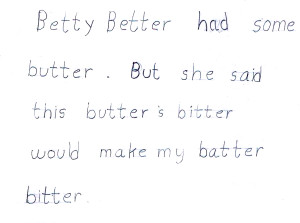 Betty Better had some
butter. But she said
this butter's bitter
would make my batter
bitter.